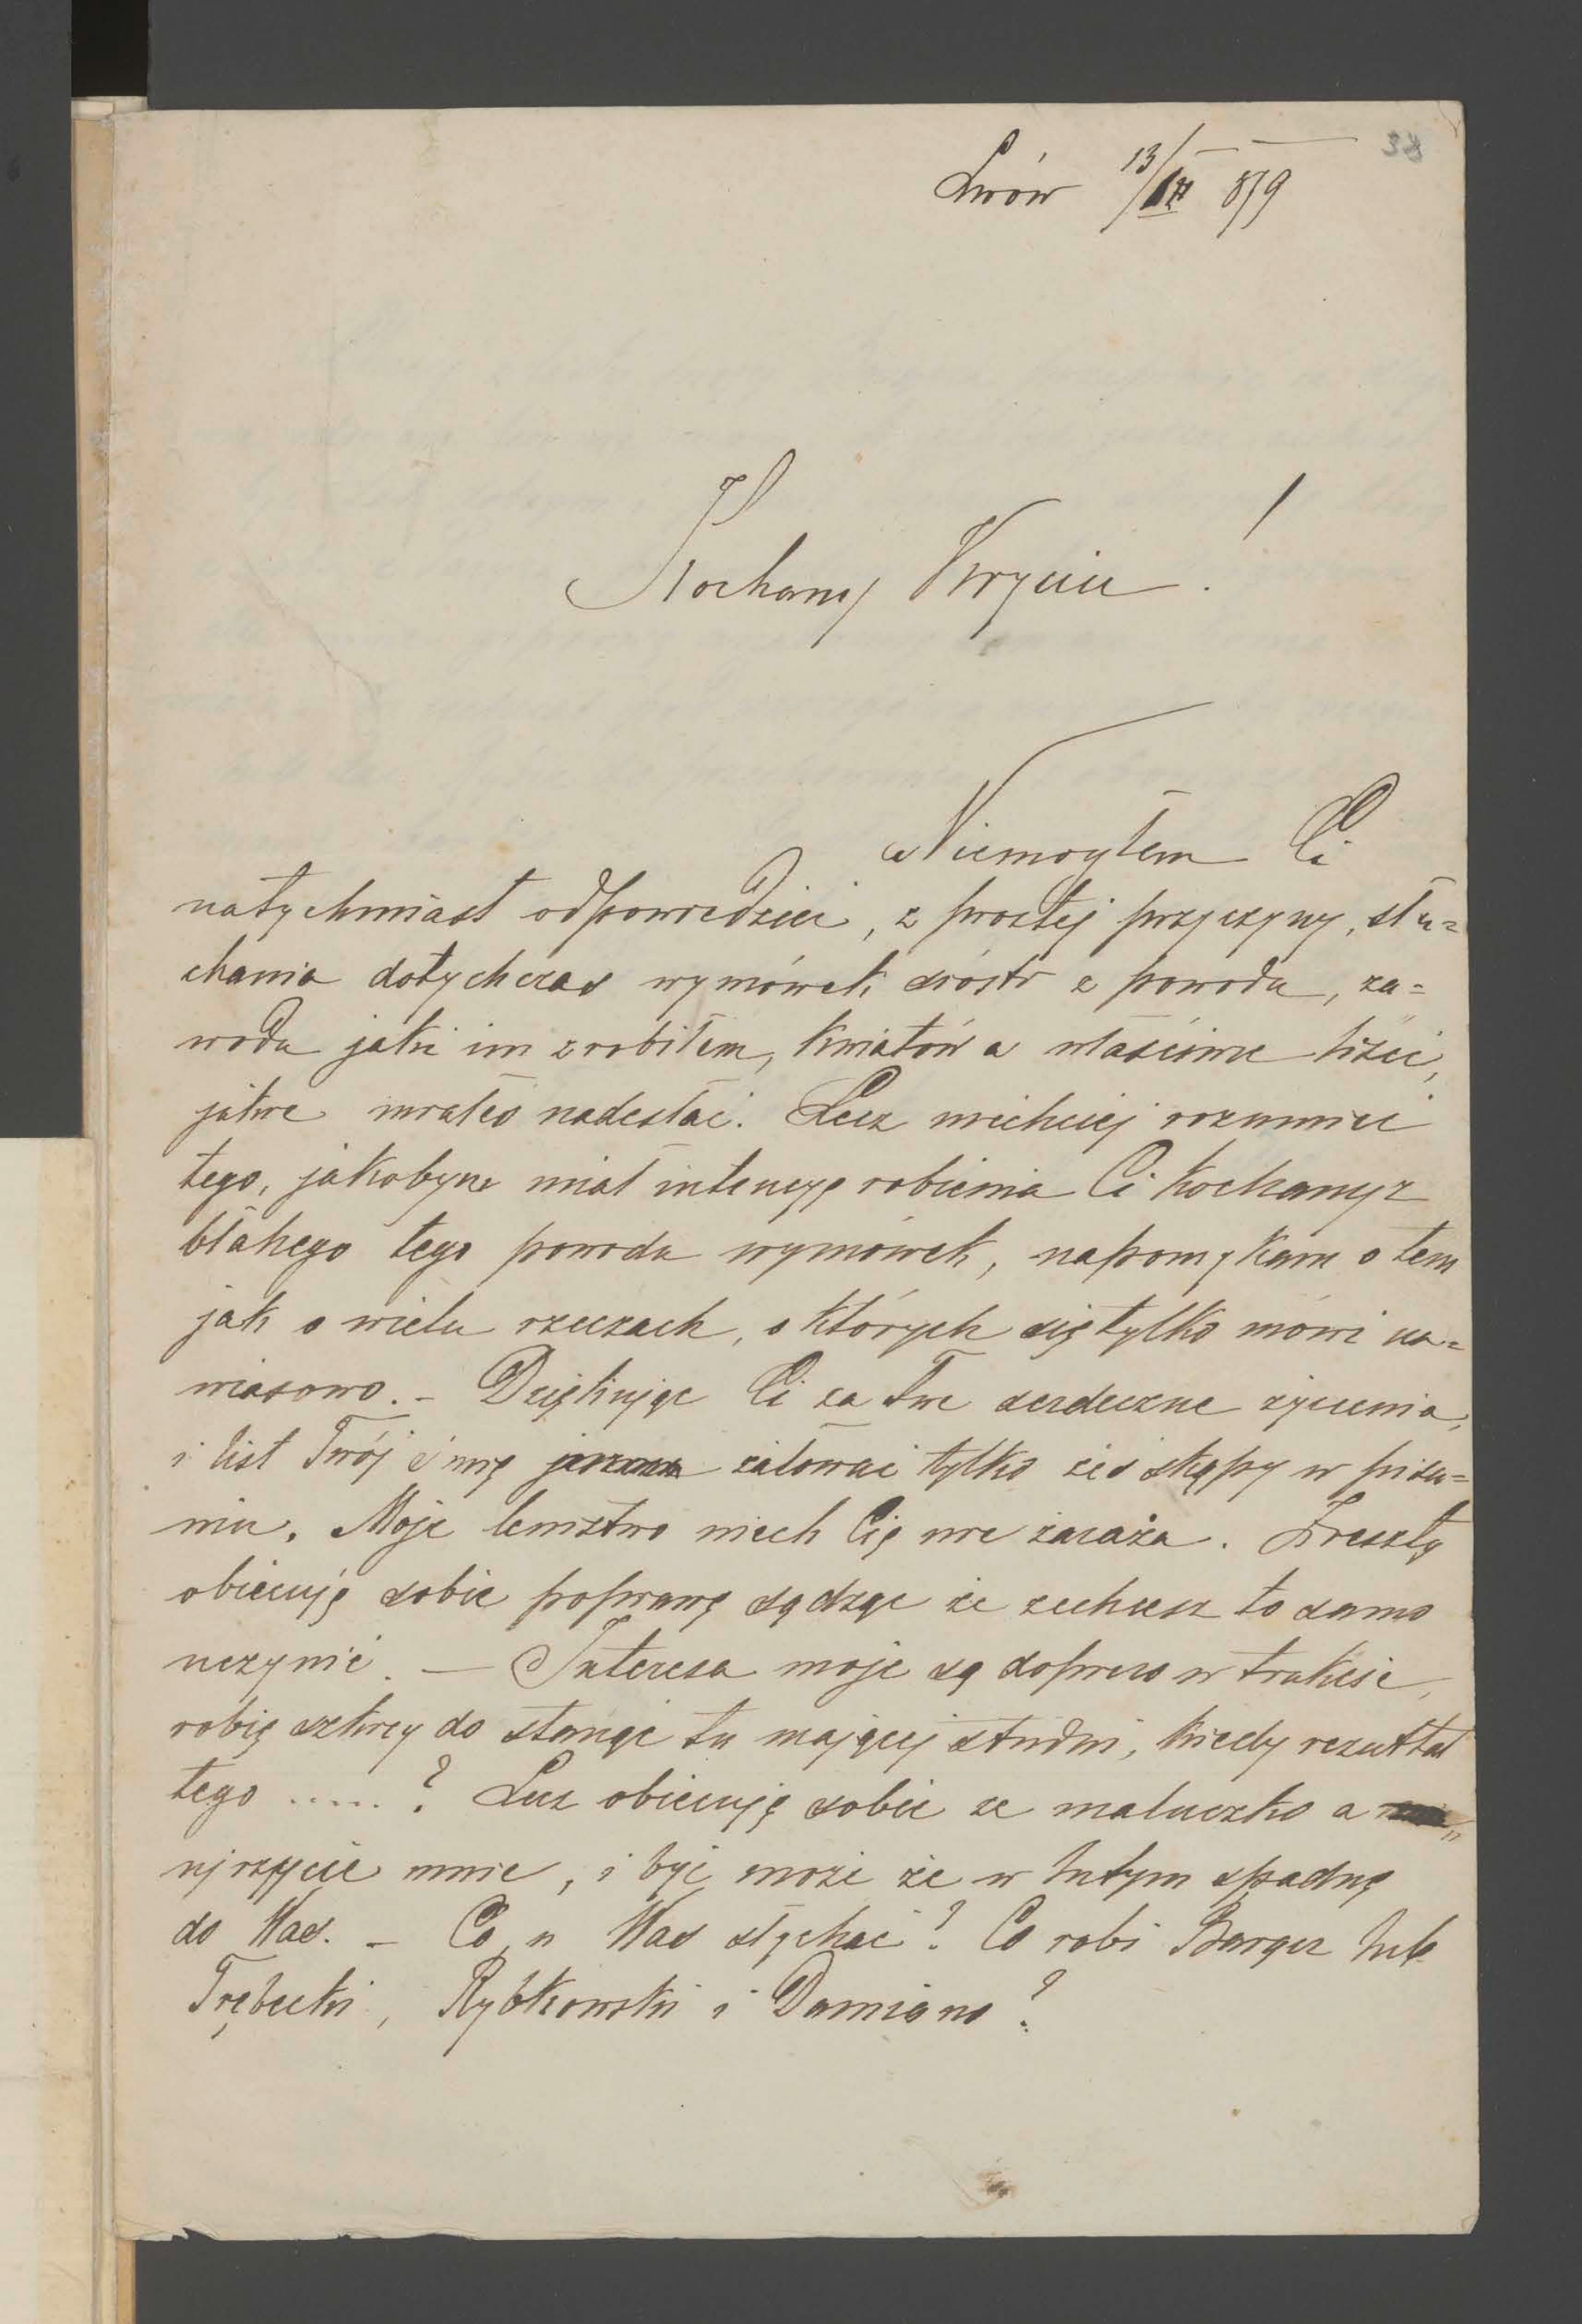 38
Lwów 13/ 879
Kochany Wryciu !
Niemogłem Ci
natychmiast odpowiedzieć, z prostej przyczyny, słu=
chania dotychczas wymówek sióstr z powodu, za=
wodu jaki im zrobiłem, kwiatów a właściwie liści,
jakie miałeś nadesłać. Lecz niechciej rozumieć
tego, jakobym miał intencyę robienia Ci Kochany z
błahego tego powodu wymówek, napomykam o tem
jak o wielu rzeczach, o których się tylko mówi na=
wiasowo. – Dziękując Ci za Twe serdeczne życzenia,
i list Twój żałować tylko żeś skąpy w pisa=
niu. Moje lenistwo niech Cię nie zaraża. Zresztą
obiecuję sobie poprawę sądząc że zechcesz to samo
uczynić. — Interesa moje są dopiero w trakcie,
robię szkicy do stanąć tu mającej studni, kiedy rezultat
tego ..... ? Lecz obiecuję sobie że maluczko a
ujrzycie mnie, i być może że w lutym spadnę
do Was. – Co u Was słychać? Co robi Barącz lub
Trębecki, Rybkowski i Damiano?